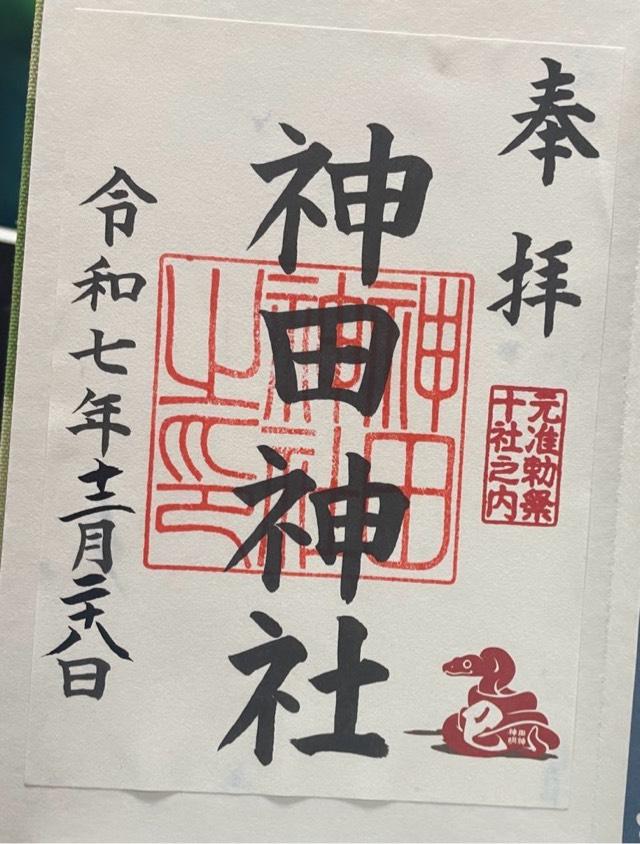 奉拝
元准勅祭
十社之内
神田神社
神田神社之印
巳
神田
明神
令和七年十二月二十八日